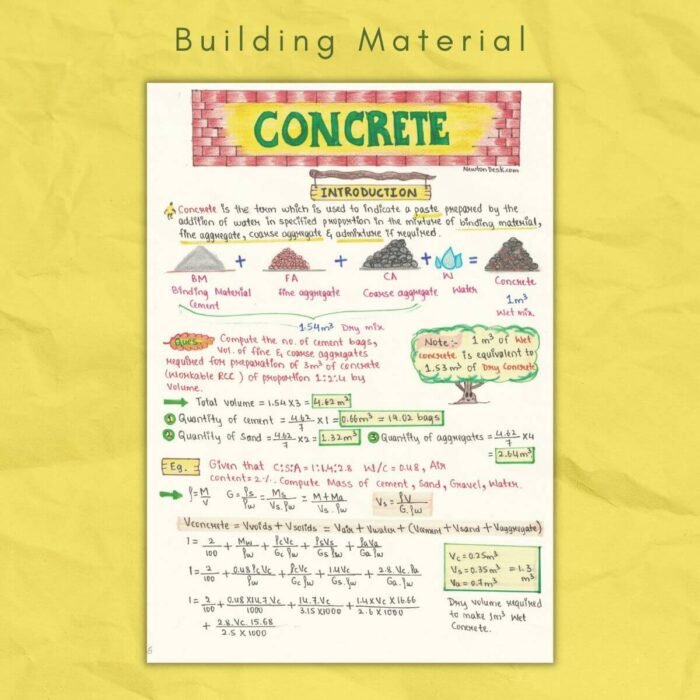 Building Material
CONCRETE
NewtonDesk.com
INTRODUCTION
Concrete is the term which is used to indicate a paste prepared by the
addition of water in specified proportion in the mixture of binding material,
fine aggregate, coarse aggregate & admixture if required.
+ + + =
BM FA CA W Concrete
Binding Material fine aggregate Coarse aggregate Water
Cement
1m³
Wet mix.
1.54m³ Dry mix
Ques. Compute the no. of cement bags,
Vol. of fine & coarse aggregates
required for preparation of 3m³ of concrete
(workable RCC) of proportion 1:2:4 by
Volume.
Note:- 1 m³ of Wet
concrete is equivalent to
1.53m³ of Dry Concrete
Total volume = 1.54 X 3 = 4.62 m³
1 Quantity of cement = 4.62/7 X 1 = 0.66m³ = 19.02 bags
2 Quantity of Sand = 4.62/7 X 2 = 1.32m³ 3 Quantity of aggregates = 4.62/7 X 4
= 2.64m³
Eg. Given that C:S:A = 1:1.4:2.8 W/C = 0.48, Air
content = 2%. Compute Mass of cement, Sand, Gravel, Water.
ρ = M/V G = ρs/ρw = Ms/Vs.ρw = M+Ma/Vs.ρw Vs = ρV/G.ρw
Vconcrete = Vvoids + Vsolids = Vair + Vwater + (Vcement + Vsand + Vaggregate)
1 = 2/100 + Mw/ρw + ρcVc/Gc ρw + ρsVs/Gs ρw + ρaVa/Ga ρw
1 = 2/100 + 0.48 ρcVc/ρw + ρcVc/Gc ρw + 1.4Vc/Gs.ρw + 2.8.Vc.ρa/Ga.ρw
1 = 2/100 + 0.48X14.7Vc/1000 + 14.7.Vc/3.15X1000 + 1.4xVc X 16.66/2.6 X 1000
+ 2.8.Vc.15.68/2.5 X 1000
Vc = 0.25m³
Vs = 0.35m³ = 1.3 m³
Va = 0.7m³
Dry volume required
to make 1m³ Wet
Concrete.